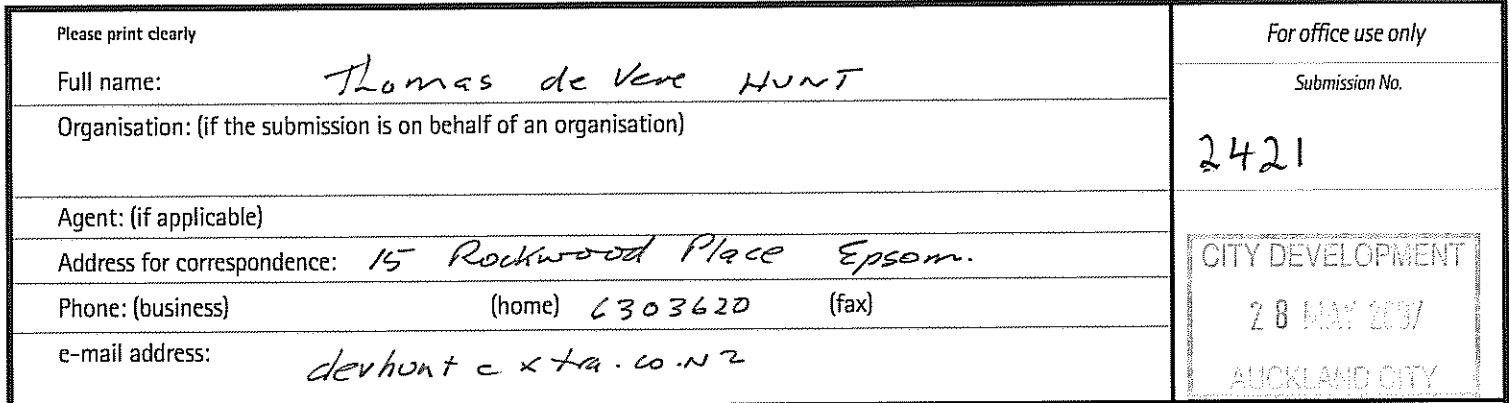 Please print clearly
Full name: Thomas de Vere HUNT
Organisation: (if the submission is on behalf of an organisation)
Agent: (if applicable)
Address for correspondence: 15 Rockwood Place Epsom.
Phone: (business) (home) 6303620 (fax)
e-mail address: devhunt @ xtra.co.NZ
For office use only
Submission No.
2421
CITY DEVELOPMENT
28 MAY
AUCKLAND CITY